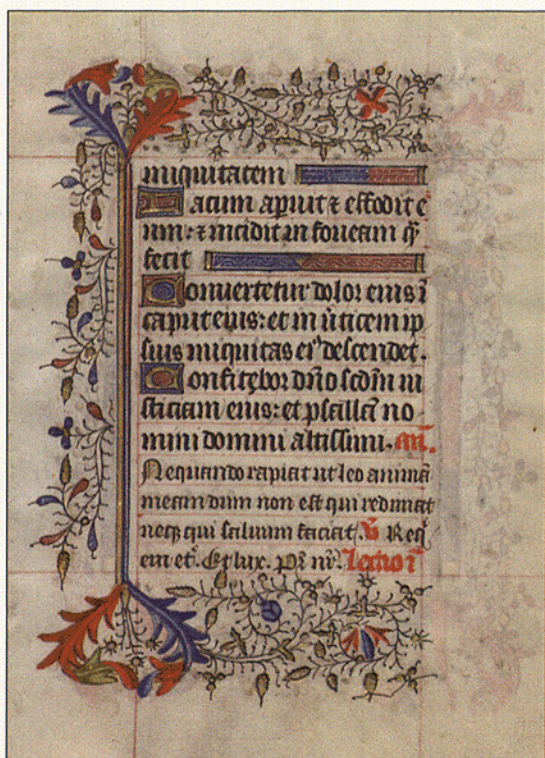 iniquitatem
Lacum aperuit ⁊ effodit e
um: ⁊ incidit in foveam q̃
fecit
Convertetur dolor eius ĩ
caput eius: et in ũticem ip
sius iniquitas eiꝰ descendet.
Confitebor dño scđm iu
sticiam eius: et psallã no
mini domini altissimi. añ.
Nequando rapiat ut leo animã
meam dum non est qui redimat
neqȝ qui saluum faciat. ℣ Requi
em et̾. Et lux. Pr̃ nr̃. Lectio ĩ